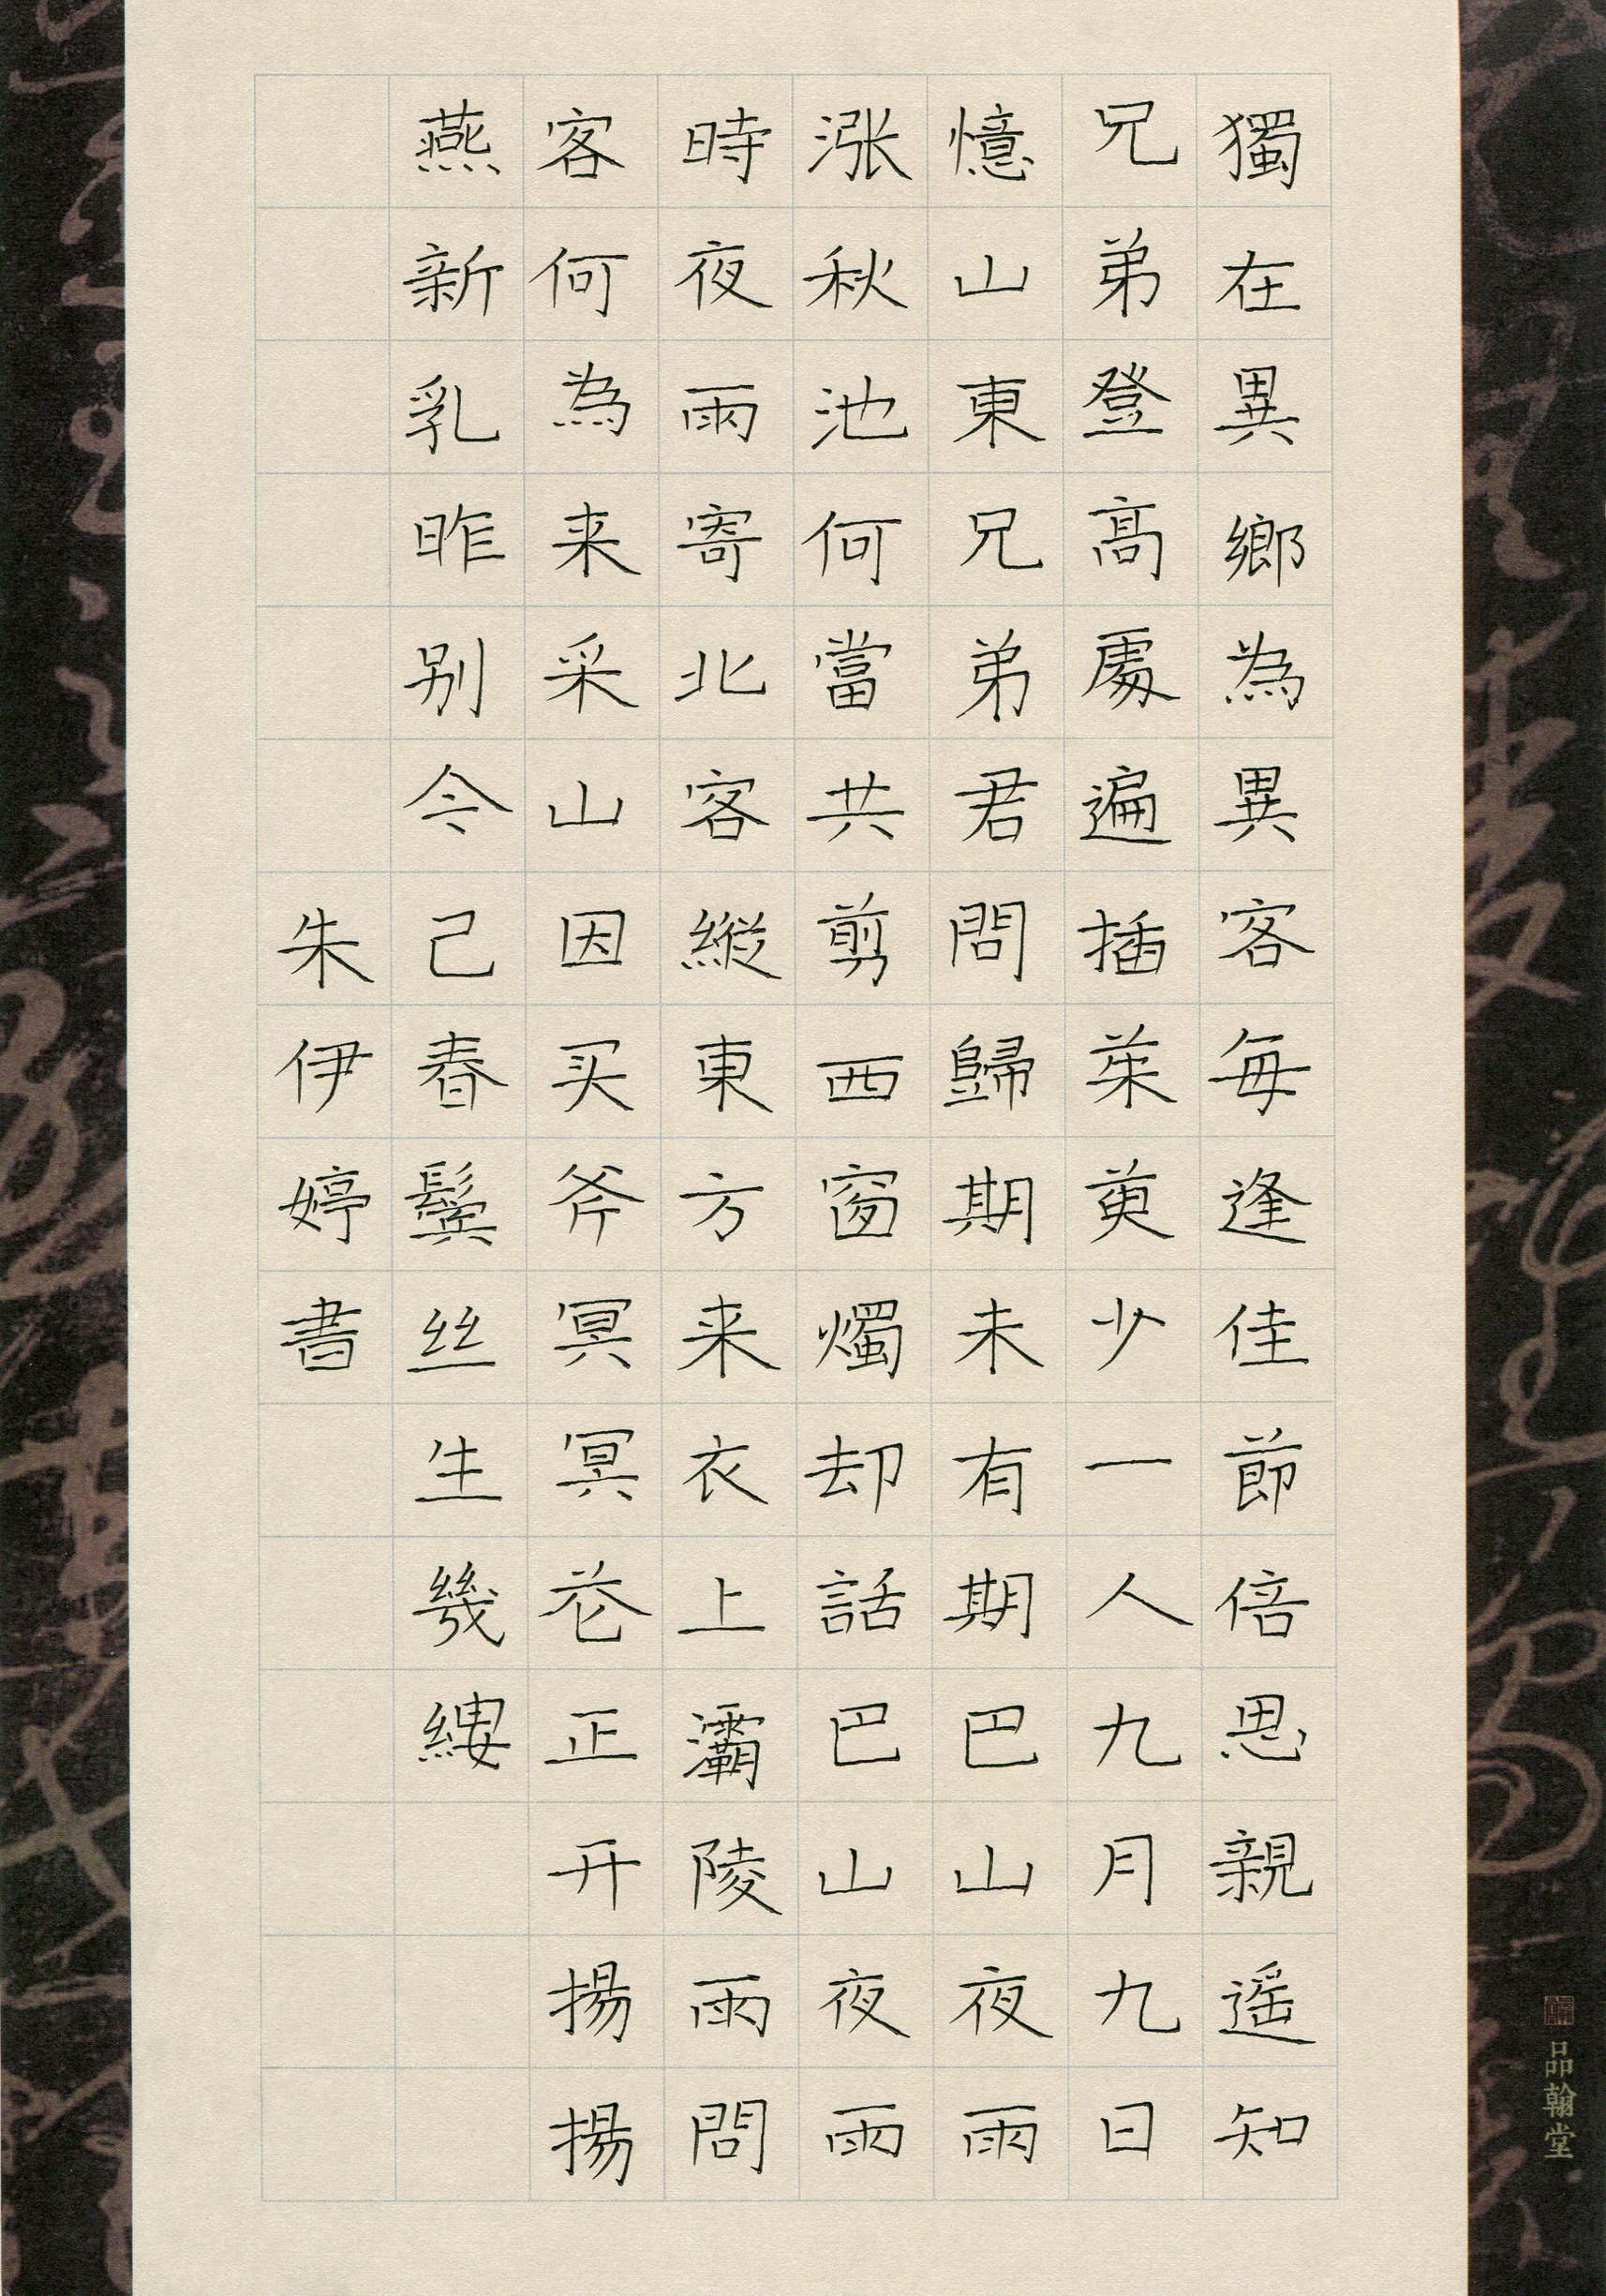 獨在異鄉為異客每逢佳節倍思親遥知
兄弟登高處遍插茱萸少一人九月九日
憶山東兄弟君問歸期未有期巴山夜雨
涨秋池何當共剪西窗燭却話巴山夜雨
時夜雨寄北客縱東方来衣上灞陵雨問
客何為来采山因买斧冥冥花正开揚揚
燕新乳昨别今己春鬓丝生幾縷
朱伊婷書
品翰堂